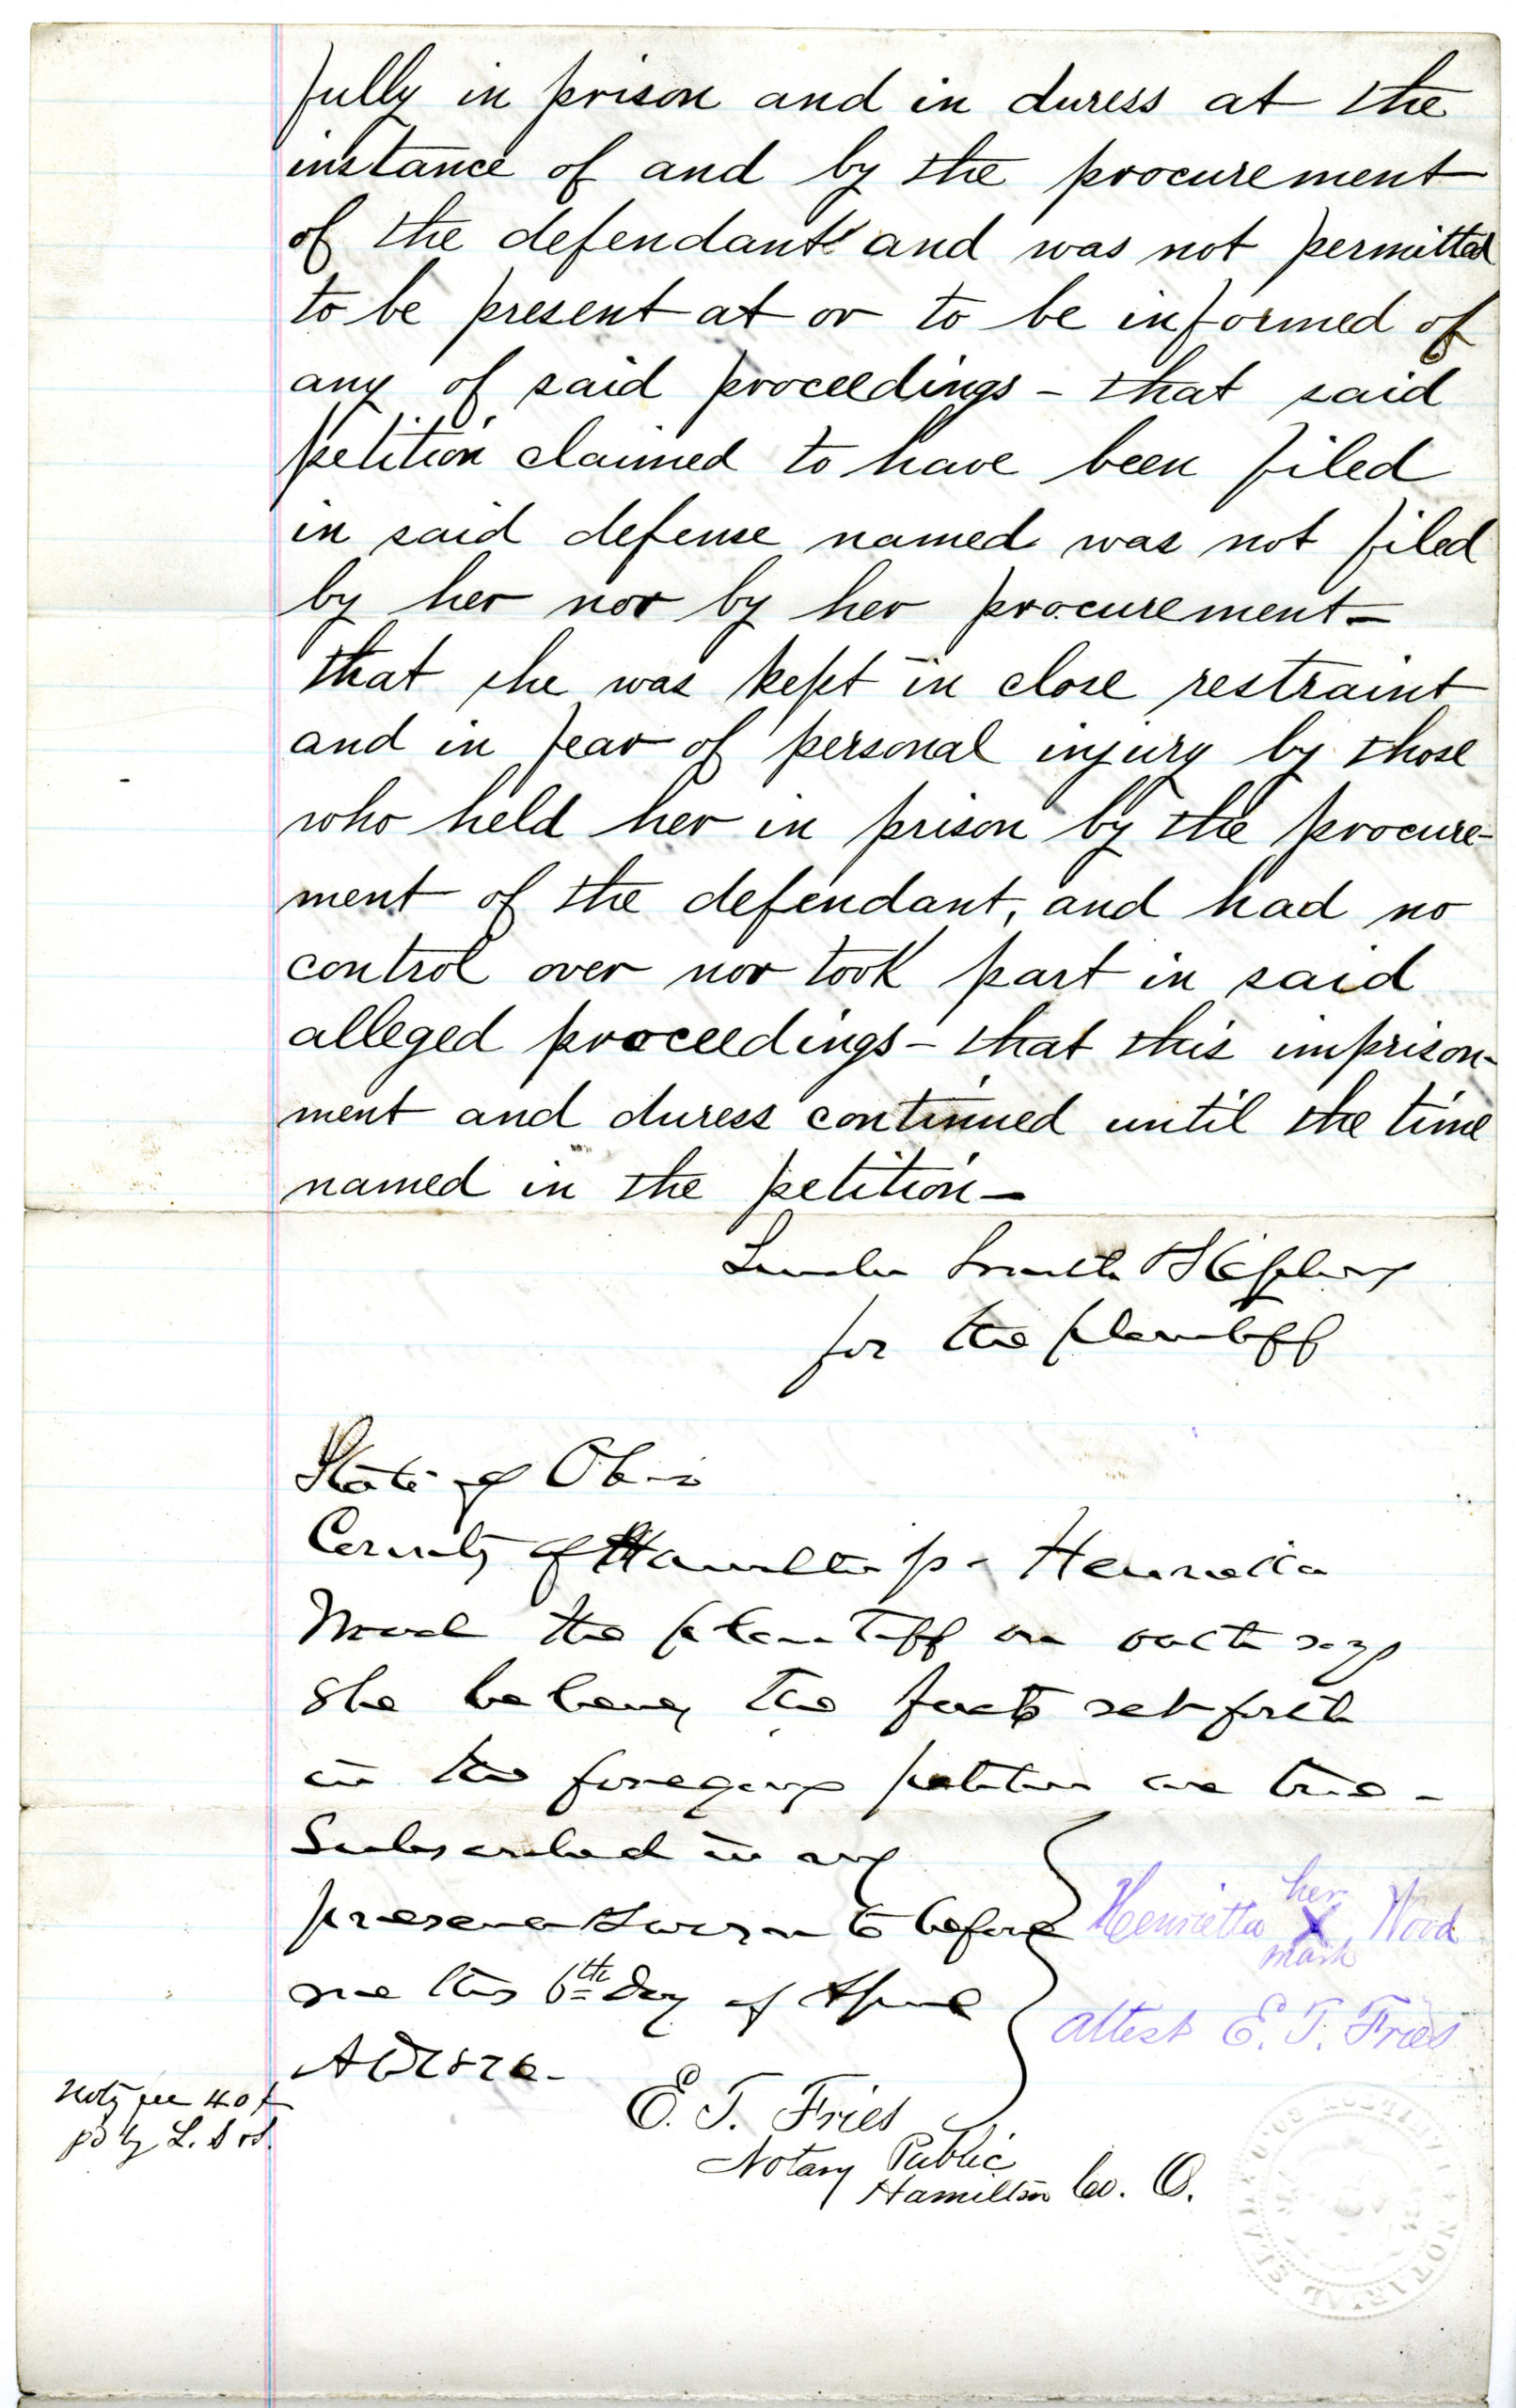 fully in prison and in duress at the
instance of and by the procurement
of the defendant and was not permitted
to be present at or to be informed of
any of said proceedings – that said
petition claimed to have been filed
in said defense named was not filed
by her nor by her procurement –
that she was kept in close restraint
and in fear of personal injury by those
who held her in prison by the procure-
ment of the defendant, and had no
control over nor took part in said
alleged proceedings – that this imprison-
ment and duress continued until the time
named in the petition –
for the plaintiff
State of Ohio
County of Hamilton Henrietta
Wood the plaintiff on oath says
she believes the facts set forth
in the foregoing petition are true –
Subscribed in my
presence & sworn to before
me this 6th day of April
AD 1876 –
Henrietta her X mark Wood
attest E. T. Fries
E. T. Fries
Notary Public
Hamilton Co. O.
Noty fee 40
pd by L. S
NOTARIAL SEAL